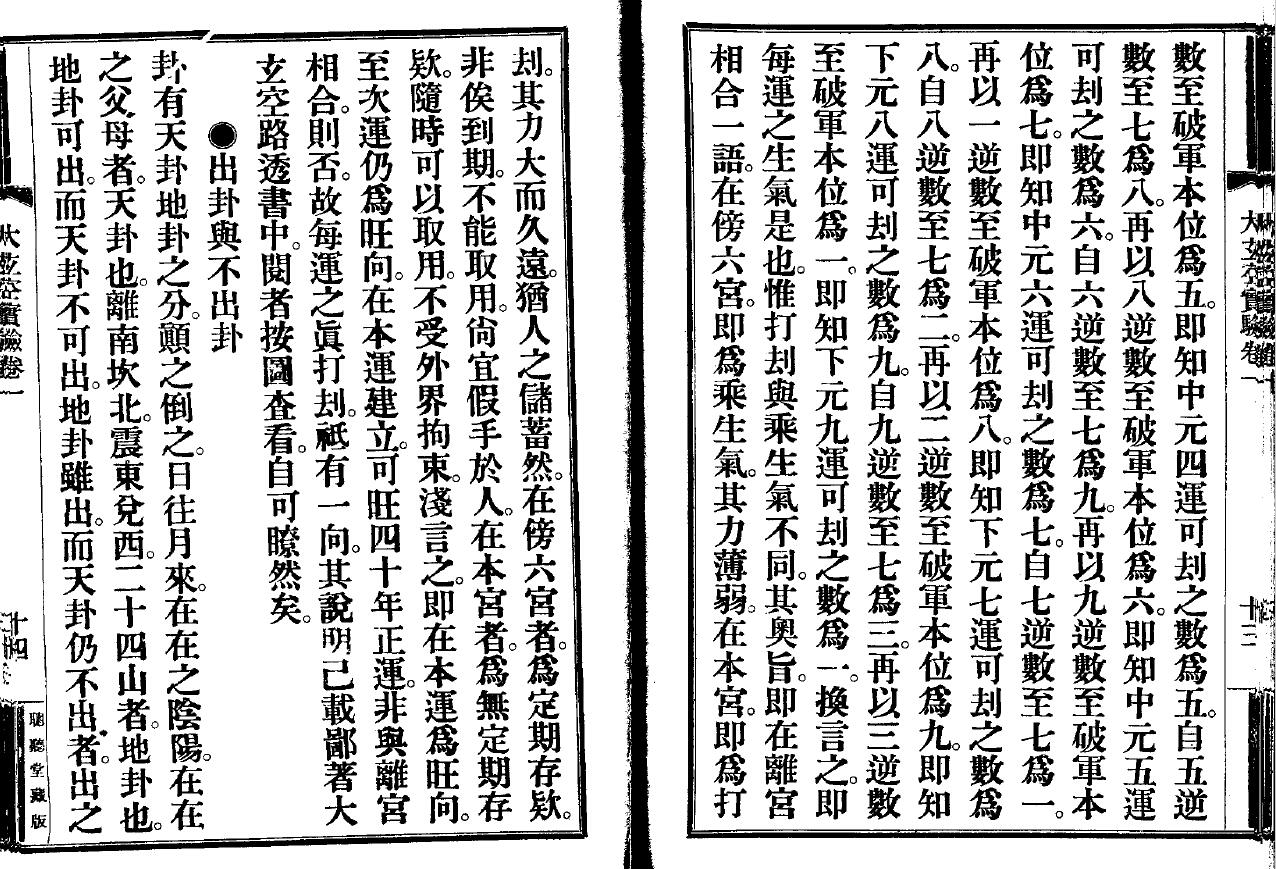 數至破軍本位爲五。即知中元四運可刦之數爲五。自五逆
數至七爲八。再以八逆數至破軍本位爲六。即知中元五運
可刦之數爲六。自六逆數至七爲九。再以九逆數至破軍本
位爲七。即知中元六運可刦之數爲七。自七逆數至七爲一。
再以一逆數至破軍本位爲八。即知下元七運可刦之數爲
八。自八逆數至七爲二。再以二逆數至破軍本位爲九。即知
下元八運可刦之數爲九。自九逆數至七爲三。再以三逆數
至破軍本位爲一。即知下元九運可刦之數爲一。換言之。即
每運之生氣是也。惟打刦與乘生氣不同。其奧旨。即在離宮
相合一語。在傍六宮。即爲乘生氣。其力薄弱。在本宮。即爲打
大玄空實驗卷一
十三
刦。其力大而久遠。猶人之儲蓄然。在傍六宮者。爲定期存欵。
非俟到期。不能取用。尙宜假手於人。在本宮者。爲無定期存
欵。隨時可以取用。不受外界拘束。淺言之。即在本運爲旺向。
至次運仍爲旺向。在本運建立。可旺四十年正運。非與離宮
相合。則否。故每運之眞打刦。祇有一向。其說明已載鄙著大
玄空路透書中。閱者按圖查看。自可瞭然矣。
●出卦與不出卦
卦有天卦地卦之分。顚之倒之。日往月來。在在之陰陽。在在
之父母者。天卦也。離南坎北。震東兌西。二十四山者。地卦也。
地卦可出。而天卦不可出。地卦雖出。而天卦仍不出者。出之
大玄空實驗卷一
十四
聽堂藏版